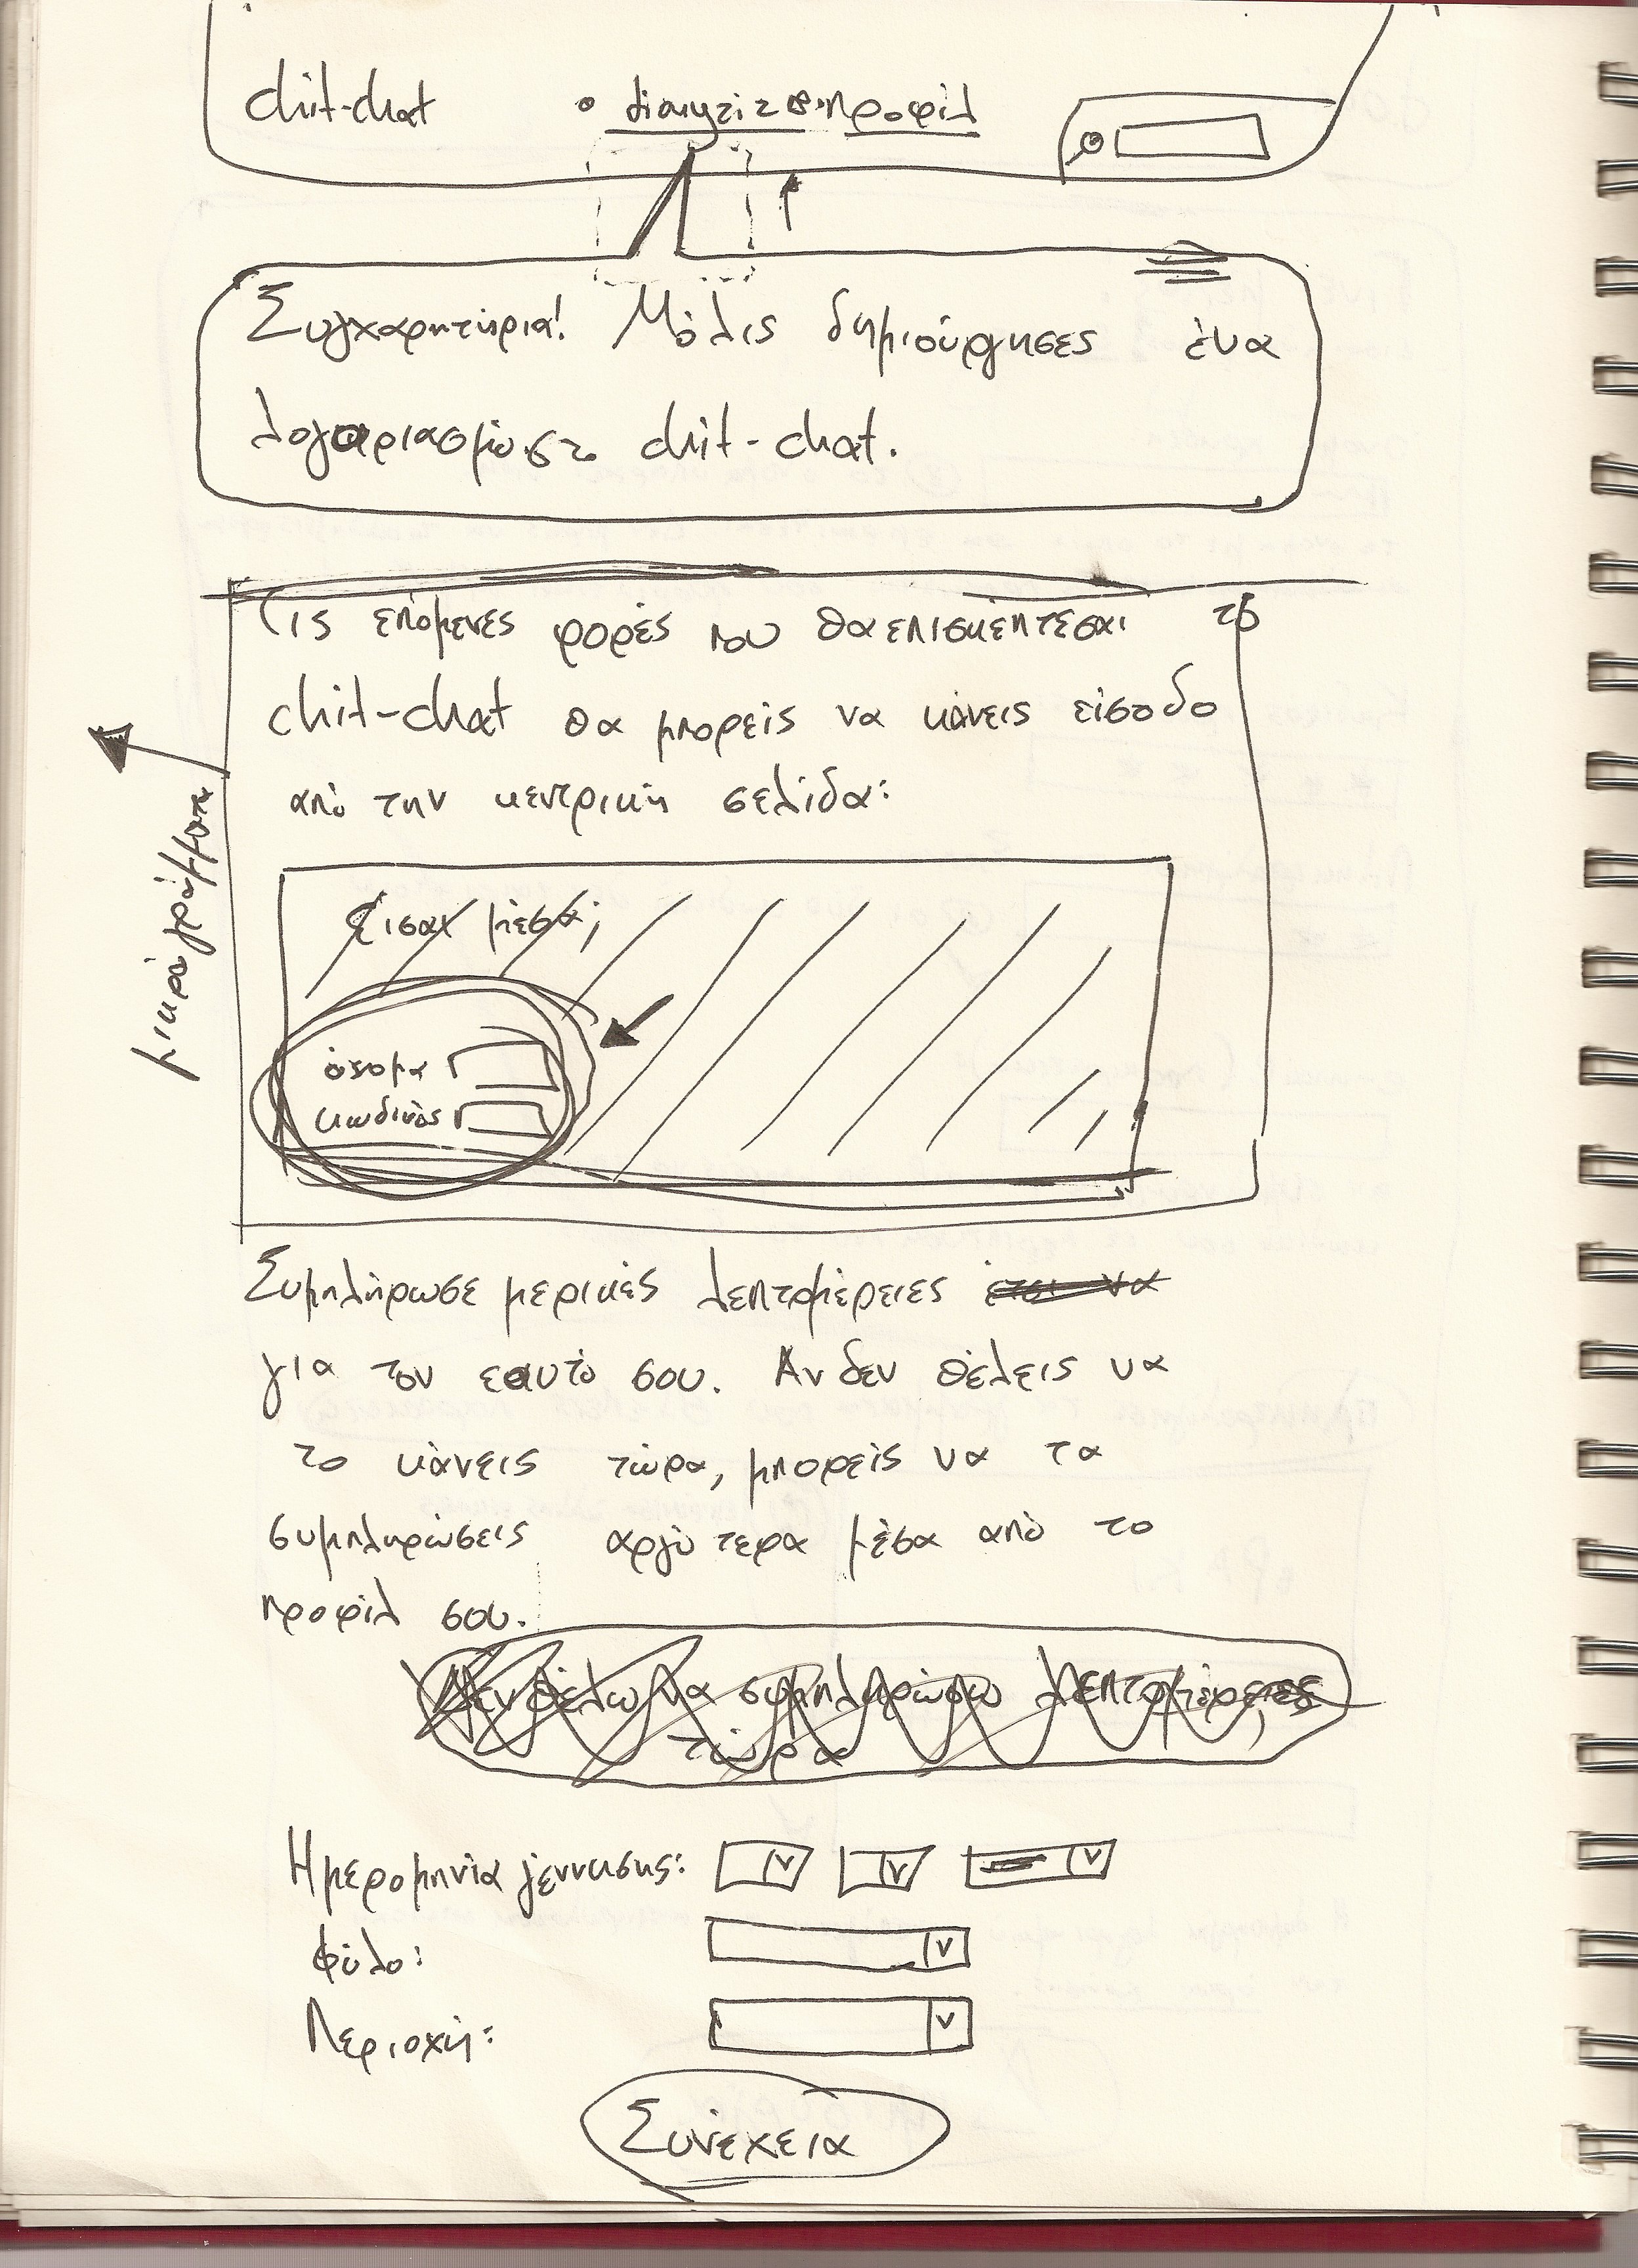 chit-chat
προφίλ
Συγχαρητήρια! Μόλις δημιούργησες ένα
λογαριασμό στο chit-chat.
Τις επόμενες φορές που θα επισκέπτεσαι το
chit-chat θα μπορείς να κάνεις είσοδο
από την κεντρική σελίδα:
μικρά γράμματα
Είσαι μέσα;
όνομα
κωδικός
Συμπλήρωσε μερικές λεπτομέρειες έτσι να
για τον εαυτό σου. Αν δεν θέλεις να
το κάνεις τώρα, μπορείς να τα
συμπληρώσεις αργότερα μέσα από το
προφίλ σου.
Δεν θέλω να συμπληρώσω λεπτομέρειες
τώρα
Ημερομηνία γέννησης:
Φύλο:
Περιοχή:
Συνέχεια